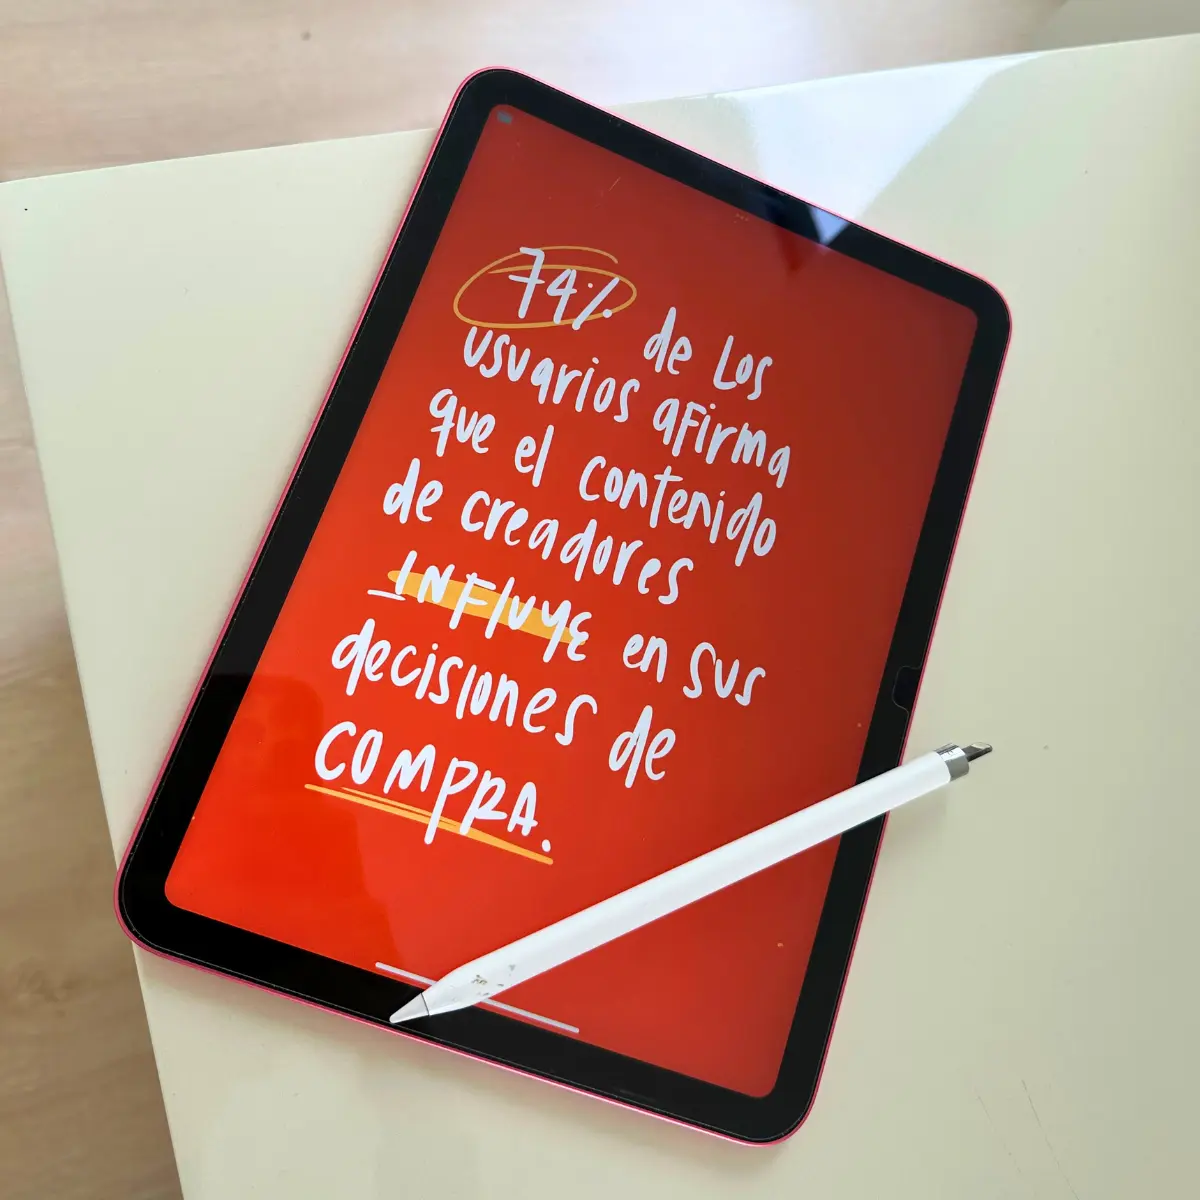 74% de Los
usuarios afirma
que el contenido
de creadores
INFLUYE en sus
decisiones de
COMPRA.